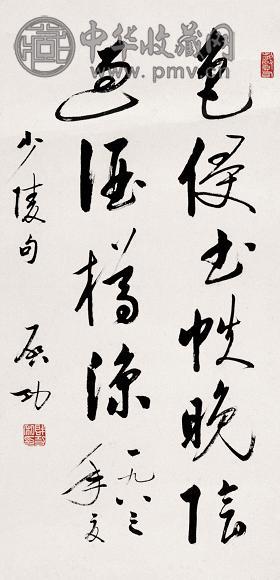 中华收藏网
www.pmv.cn
色侵书帙晚陰
過酒樽涼
一九八三
年夏
少陵句 启功